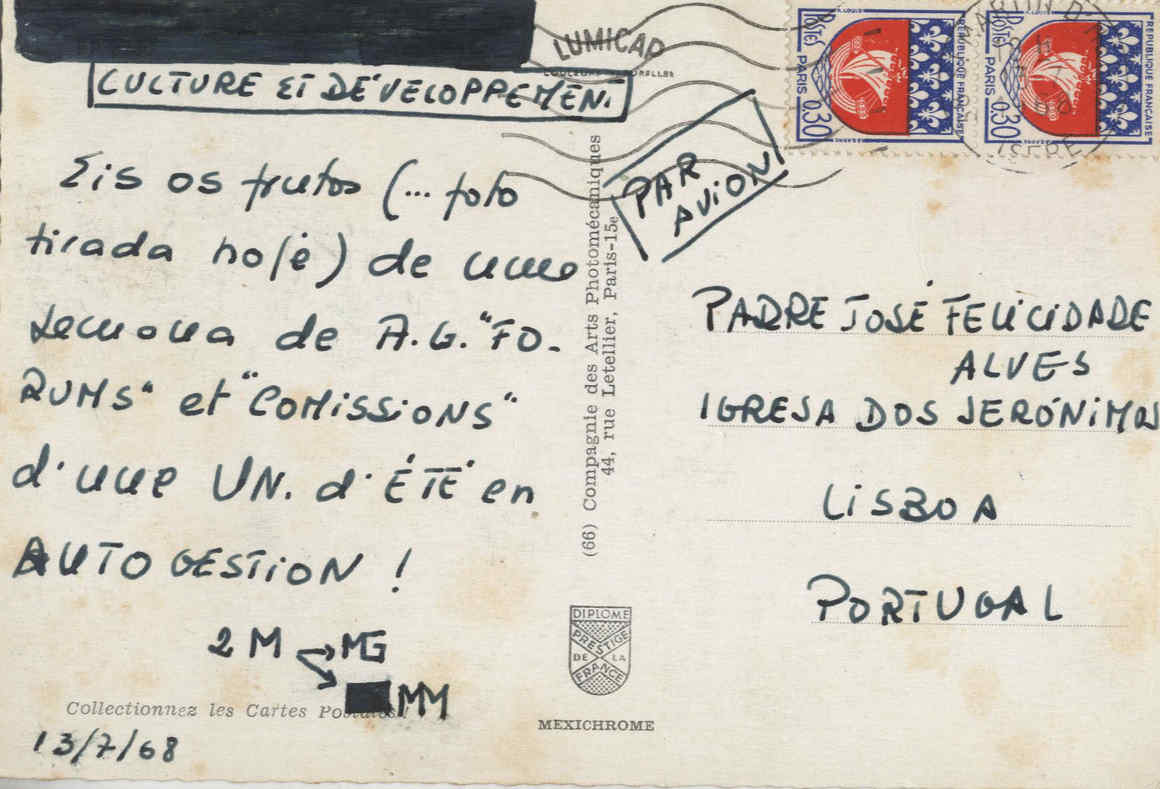 LUMICAP
CULTURE ET DÉVELOPPEMENT
Eis os frutos (... foto
tirada hoje) de uma
semana de A.G. "FO-
RUMS" et "COMISSIONS"
d'une UN. d'ÉTÉ en
AUTO GESTION !
2 M → MG
MM
Collectionnez les Cartes Postales !
13/7/68
(66) Compagnie des Arts Photomécaniques
44, rue Letellier, Paris-15e
DIPLOME
PRESTIGE
DE LA
FRANCE
MEXICHROME
PAR
AVION
POSTES
PARIS 0,30
REPUBLIQUE FRANÇAISE
POSTES
PARIS 0,30
REPUBLIQUE FRANÇAISE
ISERE
PADRE JOSÉ FELICIDADE
ALVES
IGRESA DOS JERÓNIMOS
LISBOA
PORTUGAL